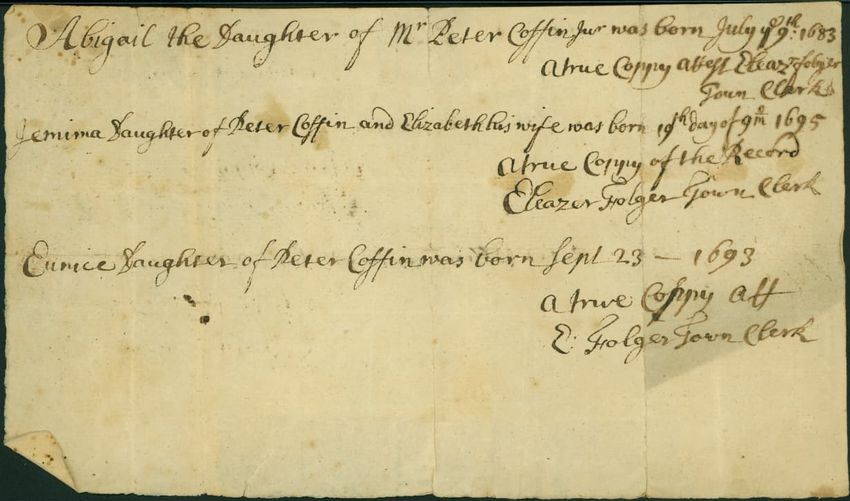 Abigail the Daughter of Mr Peter Coffin Junr was born July ye 9th: 1683
a true Coppy attest Eleazr folger
Town Clerk
Jemima Daughter of Peter Coffin and Elizabeth his wife was born 19th day of 9mo 1695
a true Coppy of the Record
Eleazer Folger Town Clerk
Eunice Daughter of Peter Coffin was born Sept 23 — 1693
a true Coppy Att
E: Folger Town Clerk